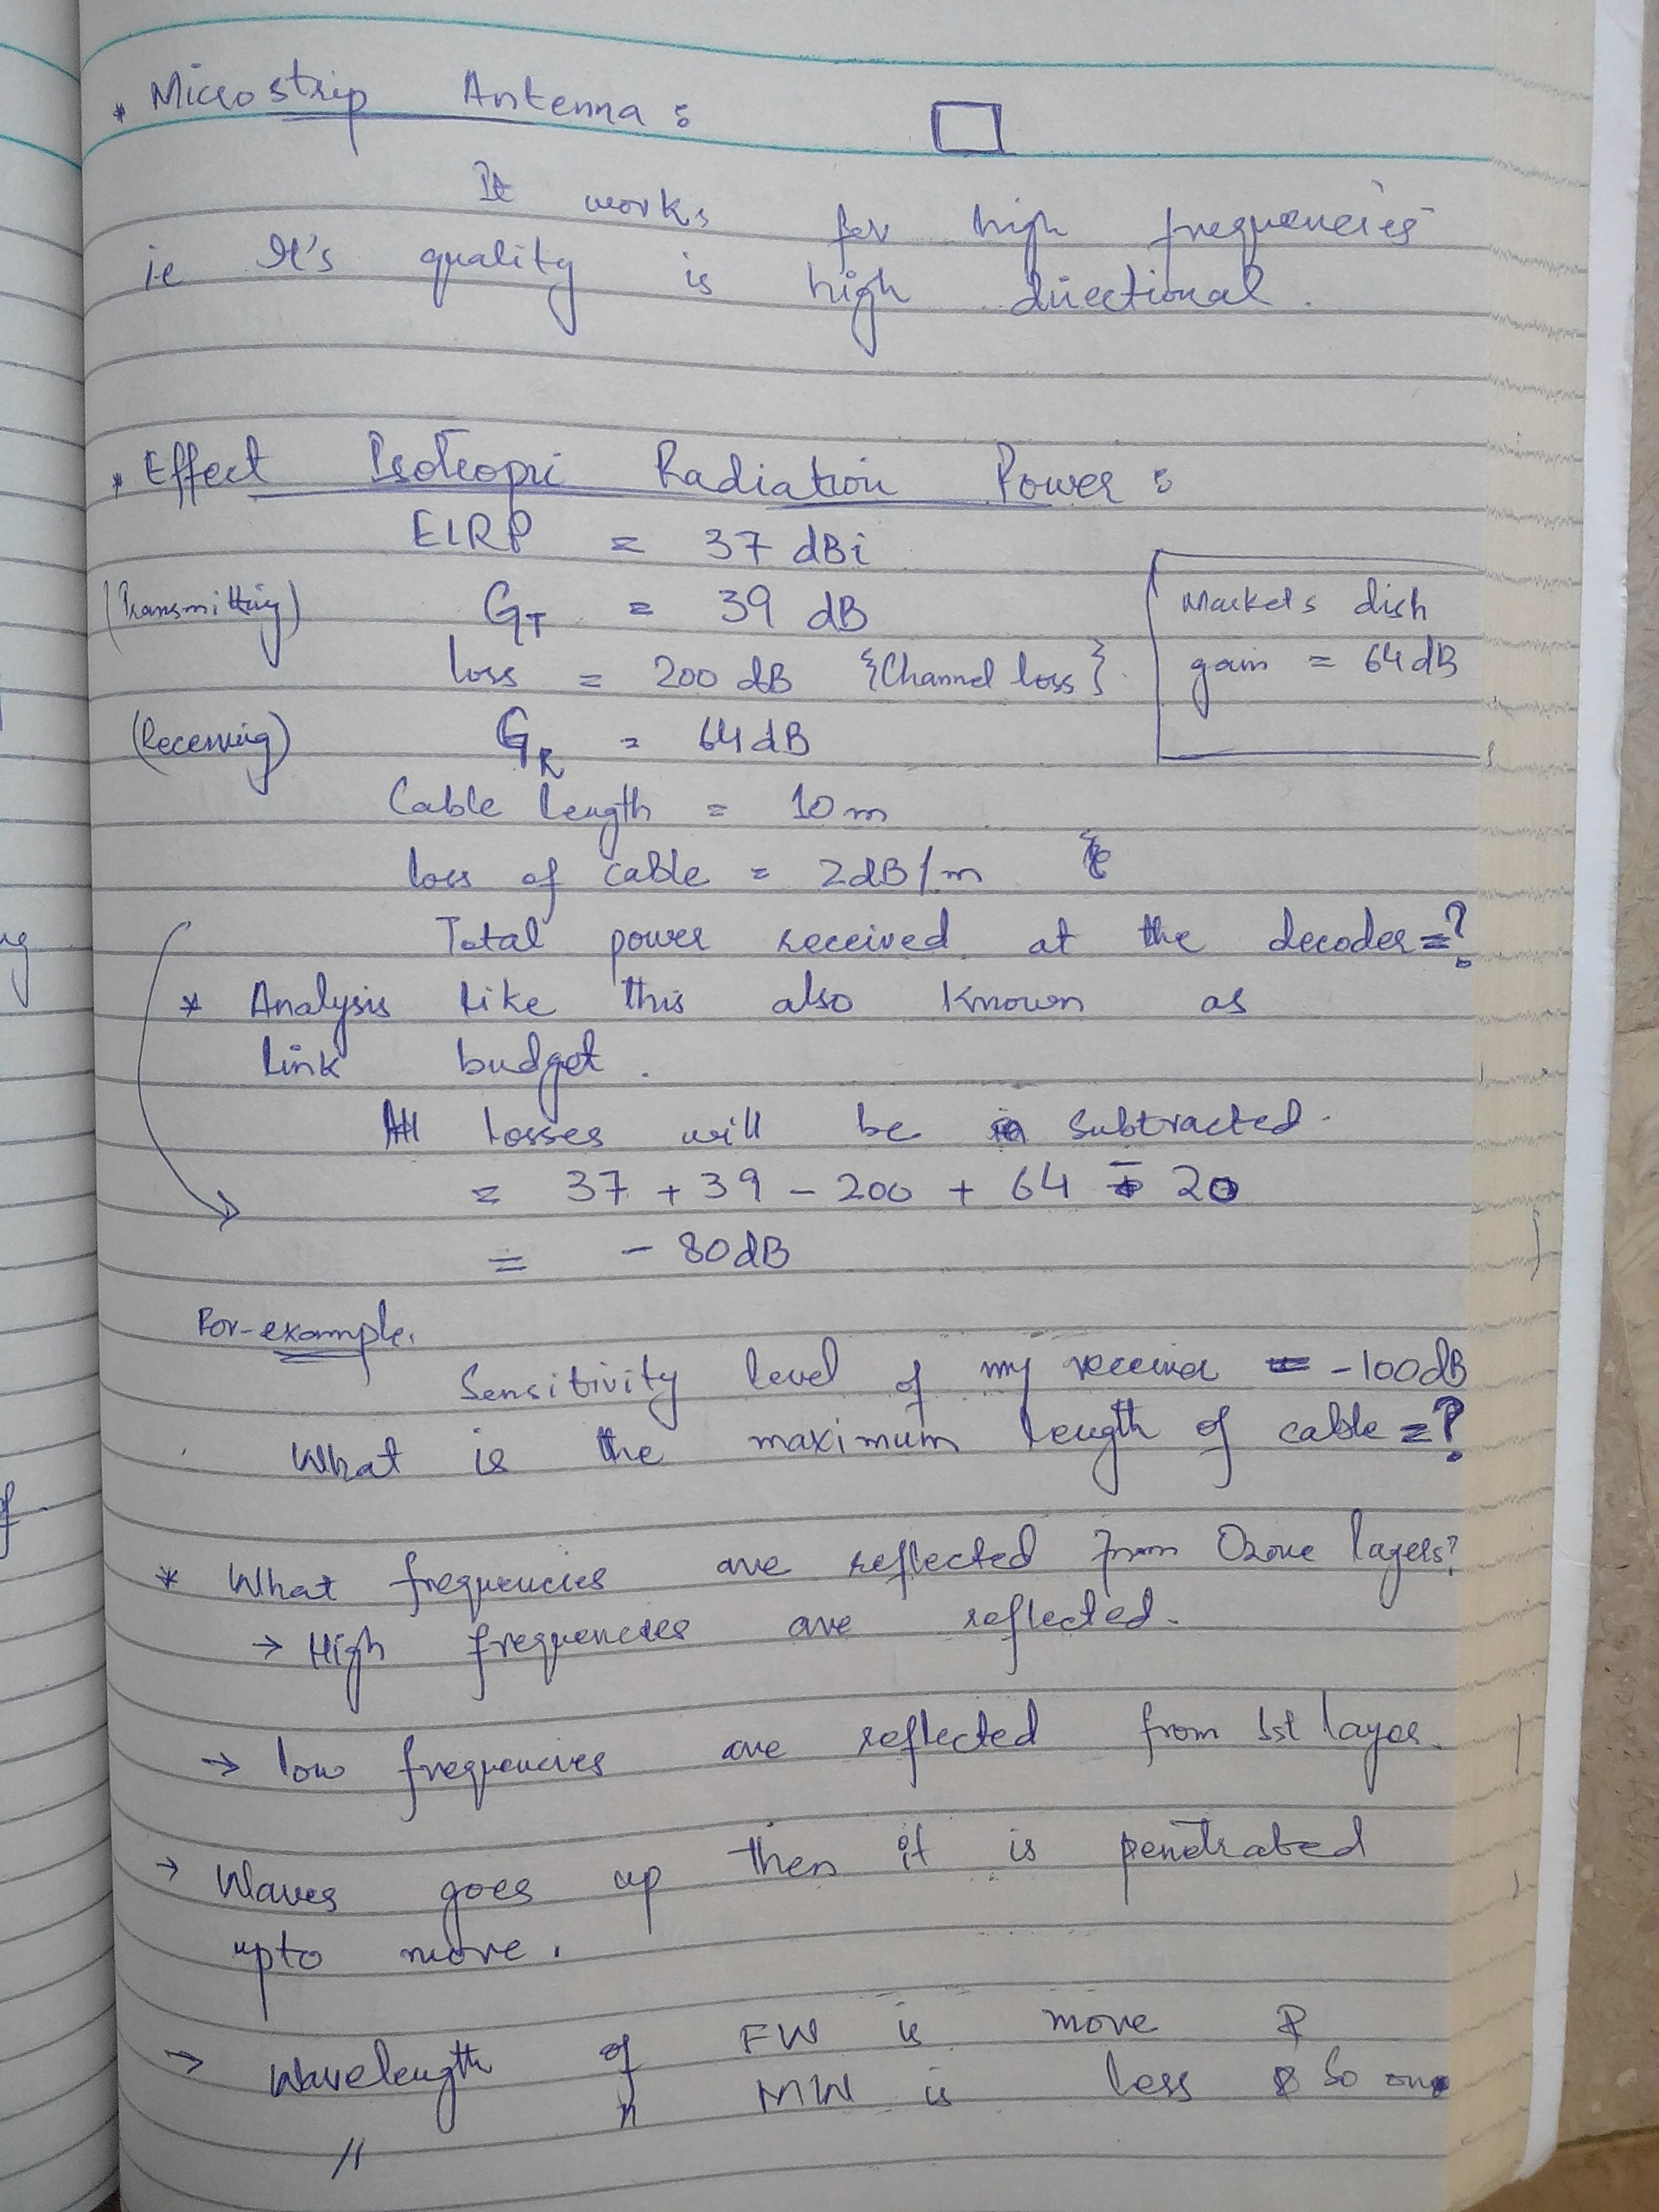 * Microstrip Antenna :
It works for high frequencies
ie It's quality is high directional.
* Effect Isotropic Radiation Power :
EIRP = 37 dBi
(Transmitting) GT = 39 dB
loss = 200 dB {Channel loss}
Markets dish
gain = 64dB
(Receiving) GR = 64dB
Cable length = 10m
loss of cable = 2dB/m
Total power received at the decoder=?
* Analysis like this also known as
link budget.
All losses will be subtracted.
= 37 + 39 - 200 + 64 - 20
= - 80dB
For-example,
Sensitivity level of my receiver = -100dB
What is the maximum length of cable=?
* What frequencies are reflected from Ozone layers?
→ High frequencies are reflected.
→ low frequencies are reflected from 1st layer.
→ Waves goes up then it is penetrated
upto more.
→ Wavelength of FW is more &
" MW is less & So on.
//